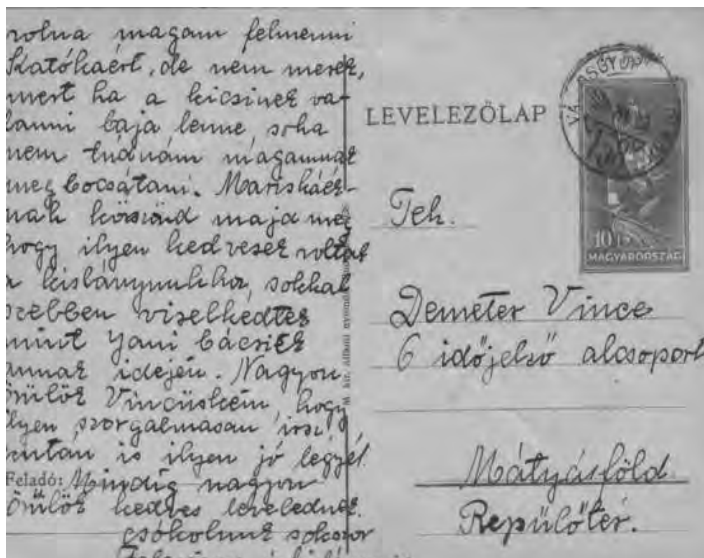 volna magam felmenni
Katókáért, de nem merek,
mert ha a kicsinek va-
lami baja lenne, soha
nem tudnám magamnak
megbocsátani. Mariskáék-
nak köszönd majd meg
hogy ilyen kedvesek voltak
a kislányunkhoz, sokkal
szebben viselkedtek
mint Jani bácsiék
annak idején. Nagyon
örülök Vincúskám, hogy
ilyen szorgalmasan irsz,
ezután is ilyen jó legyél.
Feladó: Mindig nagyon
örülök kedves levelednek.
csókolunk sokszor
M. kir. állami nyomda
LEVELEZŐLAP
10 f
MAGYARORSZÁG
Teh.
Demeter Vince
6 időjelző alcsoport
Mátyásföld.
Repülőtér.